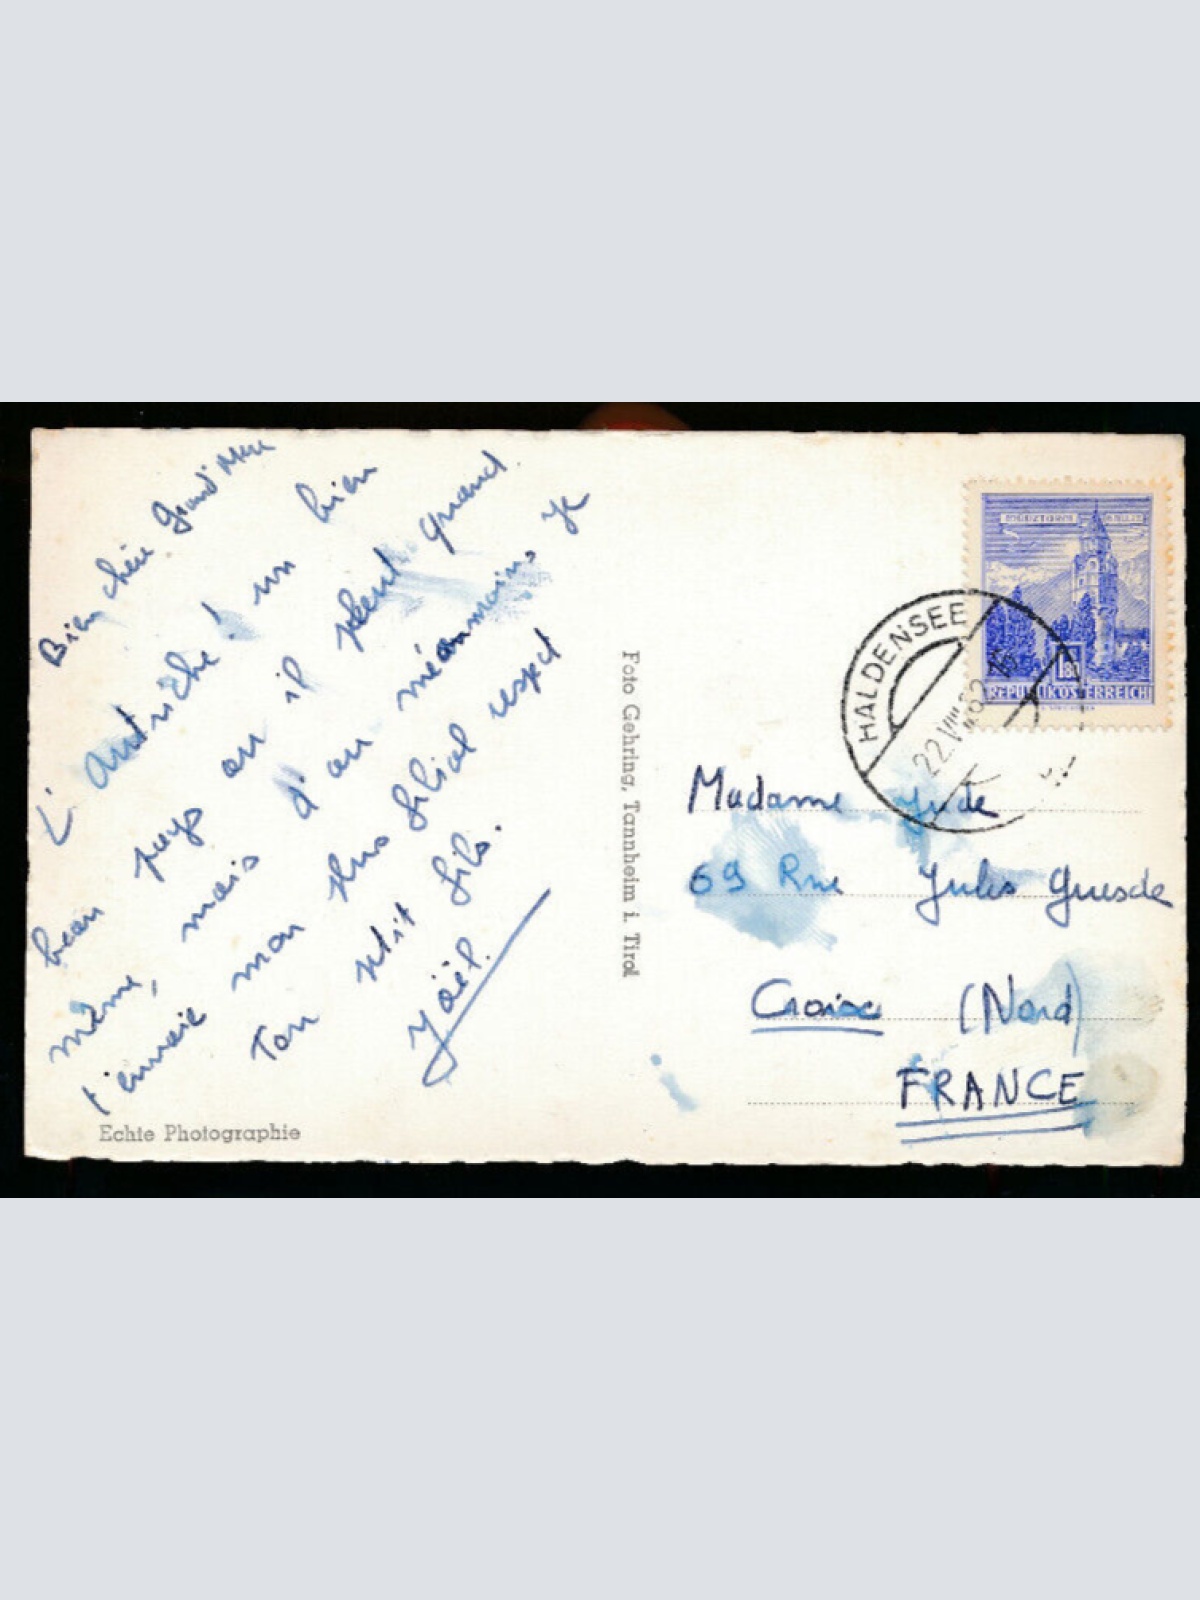 Bien chère Grand'Mère
L'Autriche ! un bien
beau pays où il pleut quand
même, mais d'où néanmoins je
t'envoie mon plus filial respect
Ton petit fils.
Joël.
Echte Photographie
Foto Gehring, Tannheim i. Tirol
HALDENSEE
22.VIII.62 16
1.80
REPUBLIK OSTERREICH
Madame Jude
69 Rue Jules Guesde
Croix (Nord)
FRANCE